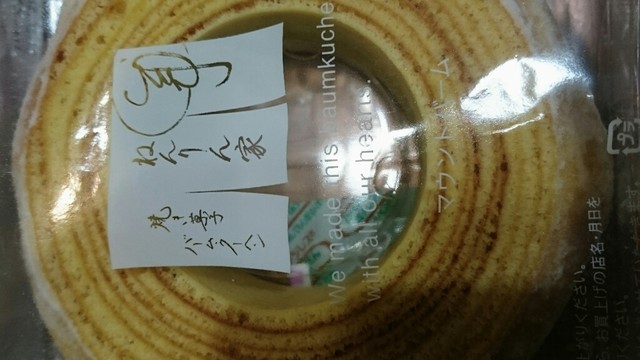 ねんりん家
焼き菓子
バームクーヘン
We made this baumkuchen
with all our hearts.
マウントバーム
かりください。
お買上げの店名・月日を
ださい。